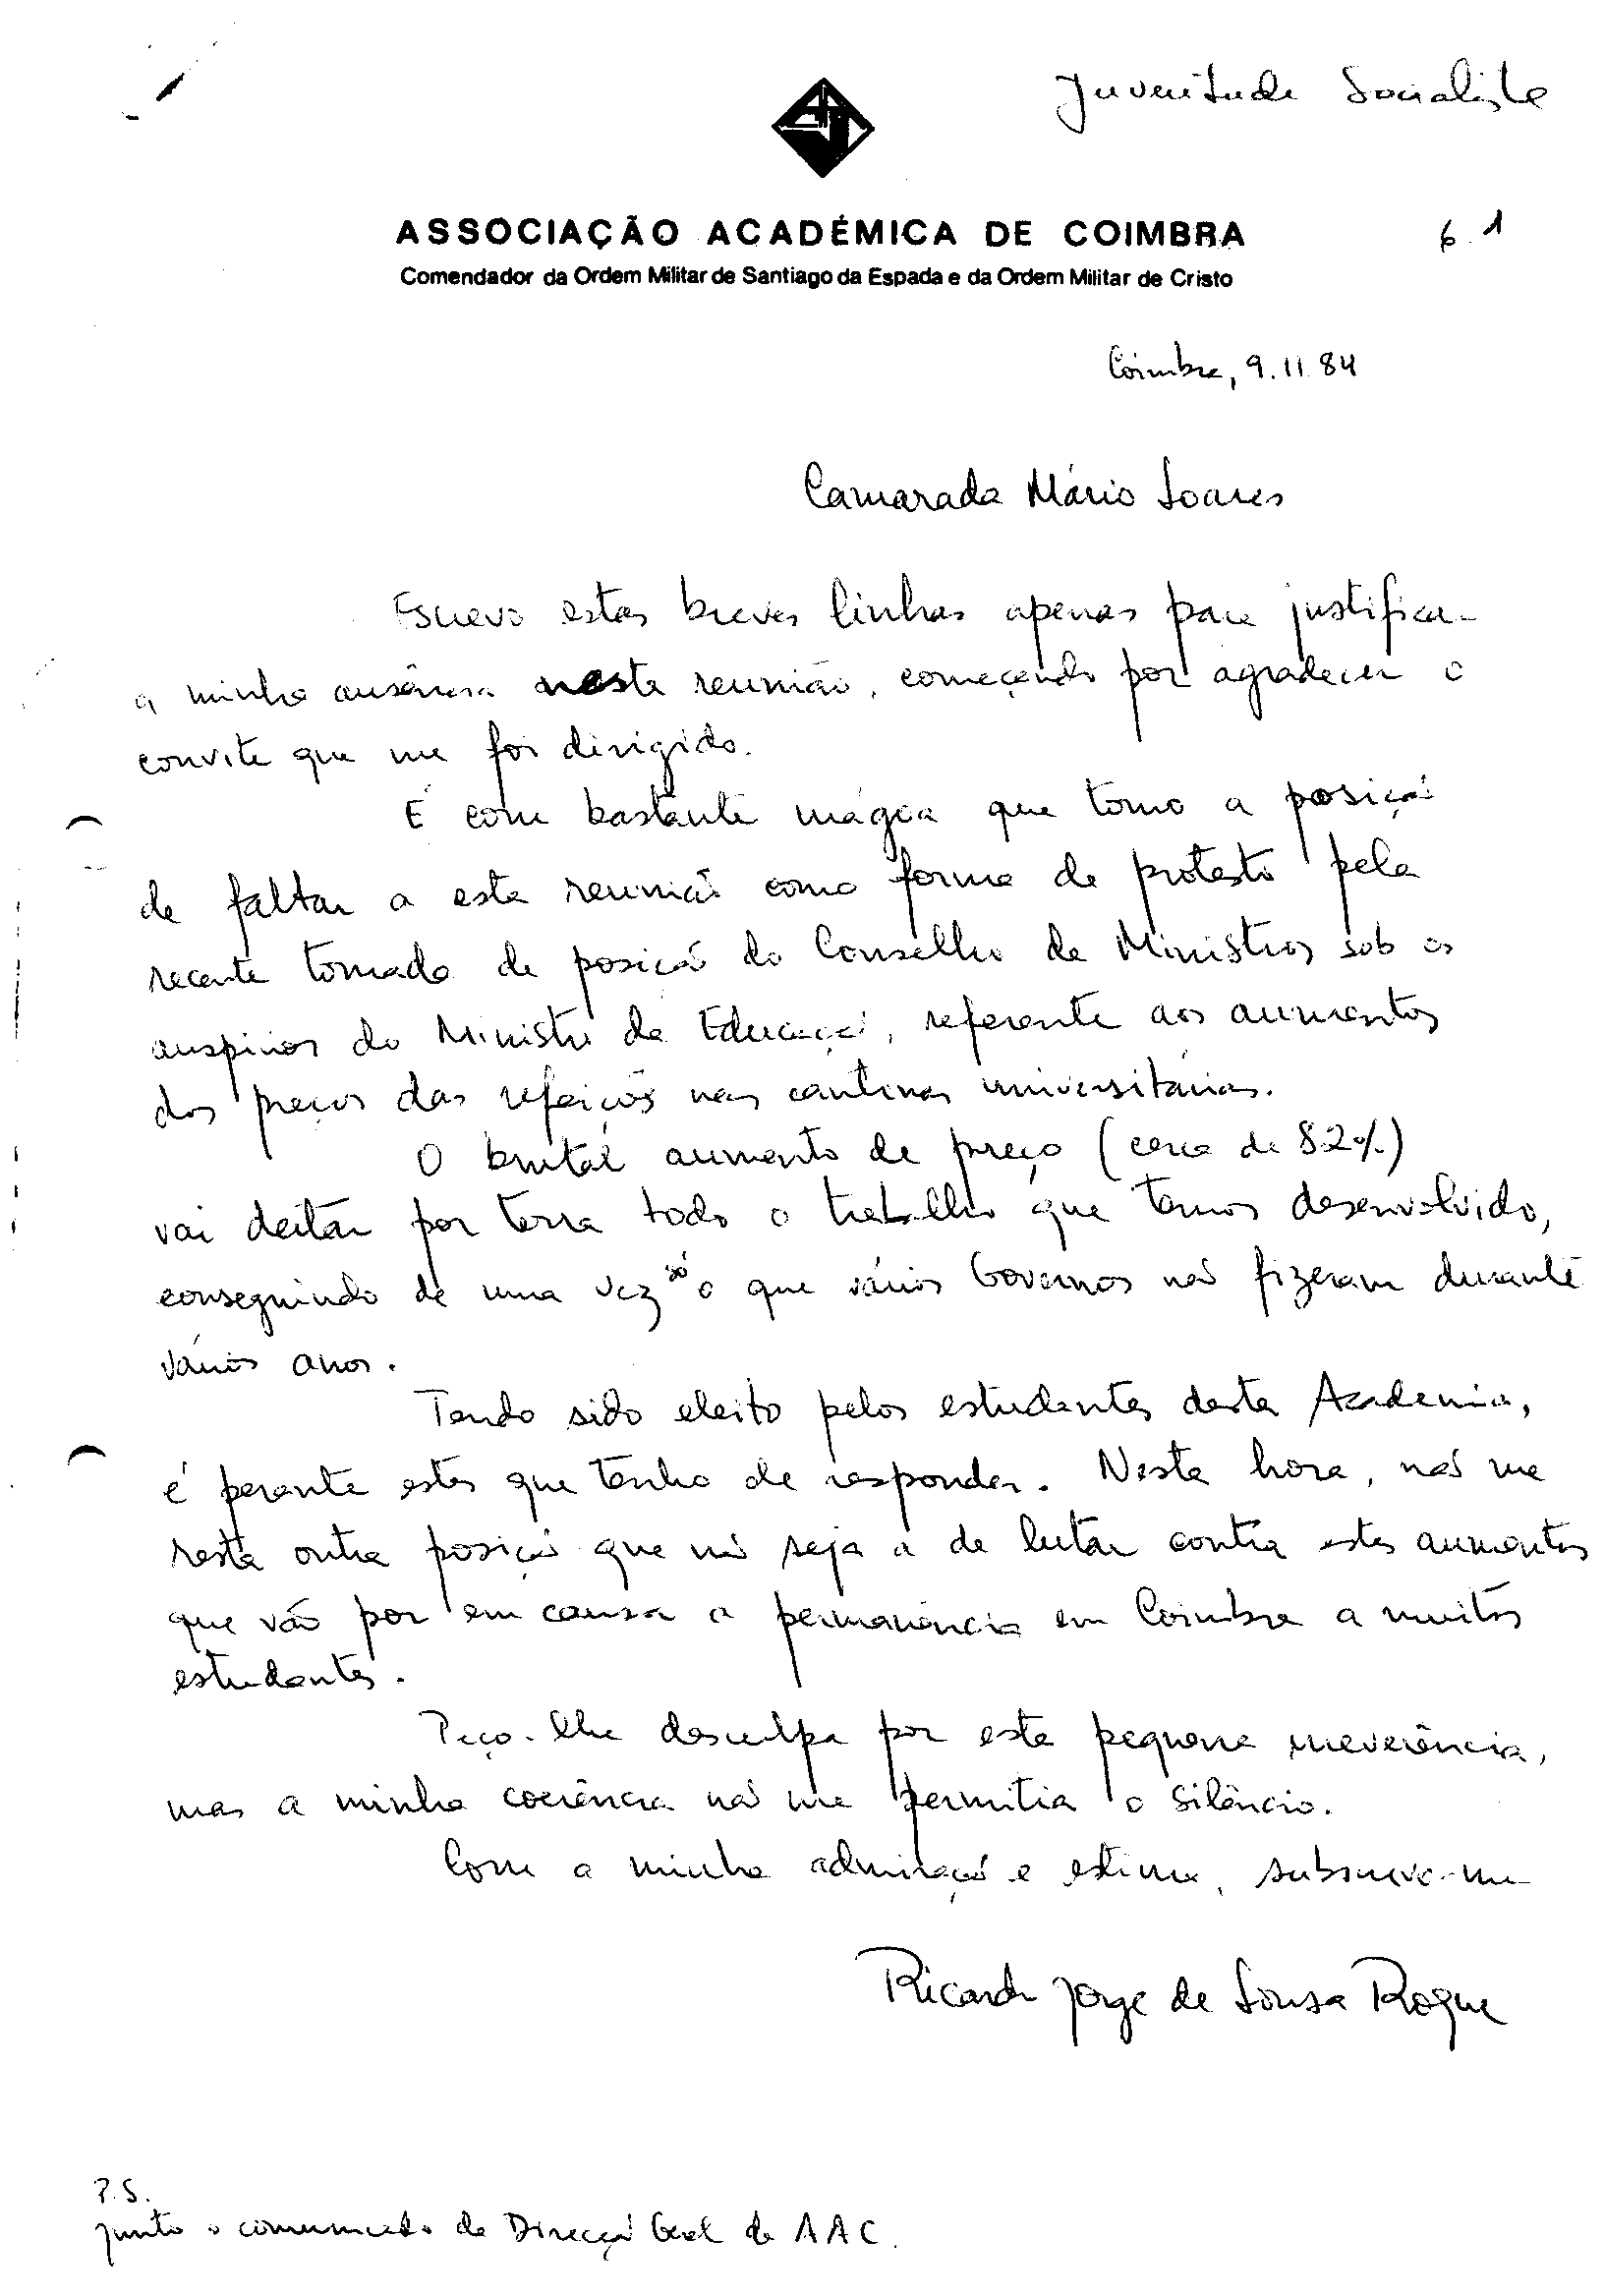 Juventude Socialista
ASSOCIAÇÃO ACADÉMICA DE COIMBRA
6.1
Comendador da Ordem Militar de Santiago da Espada e da Ordem Militar de Cristo
Coimbra, 9.11.84
Camarada Mário Soares
Escrevo estas breves linhas apenas para justificar
a minha ausência nesta reunião, começando por agradecer o
convite que me foi dirigido.
É com bastante mágoa que tomo a posição
de faltar a esta reunião como forma de protesto pela
recente tomada de posição do Conselho de Ministros sob os
auspícios do Ministro da Educação, referente aos aumentos
dos preços das refeições nas cantinas universitárias.
O brutal aumento de preço (cerca de 82%)
vai deitar por terra todo o trabalho que temos desenvolvido,
conseguindo de uma vez só o que vários Governos não fizeram durante
vários anos.
Tendo sido eleito pelos estudantes desta Academia,
é perante estes que tenho de responder. Nesta hora, não me
resta outra posição que não seja a de lutar contra estes aumentos
que vão por em causa a permanência em Coimbra a muitos
estudantes.
Peço-lhe desculpa por esta pequena irreverência,
mas a minha coerência não me permitia o silêncio.
Com a minha admiração e estima, subscrevo-me
Ricardo Jorge de Sousa Roque
P.S.
junto o comunicado da Direcção Geral da AAC.